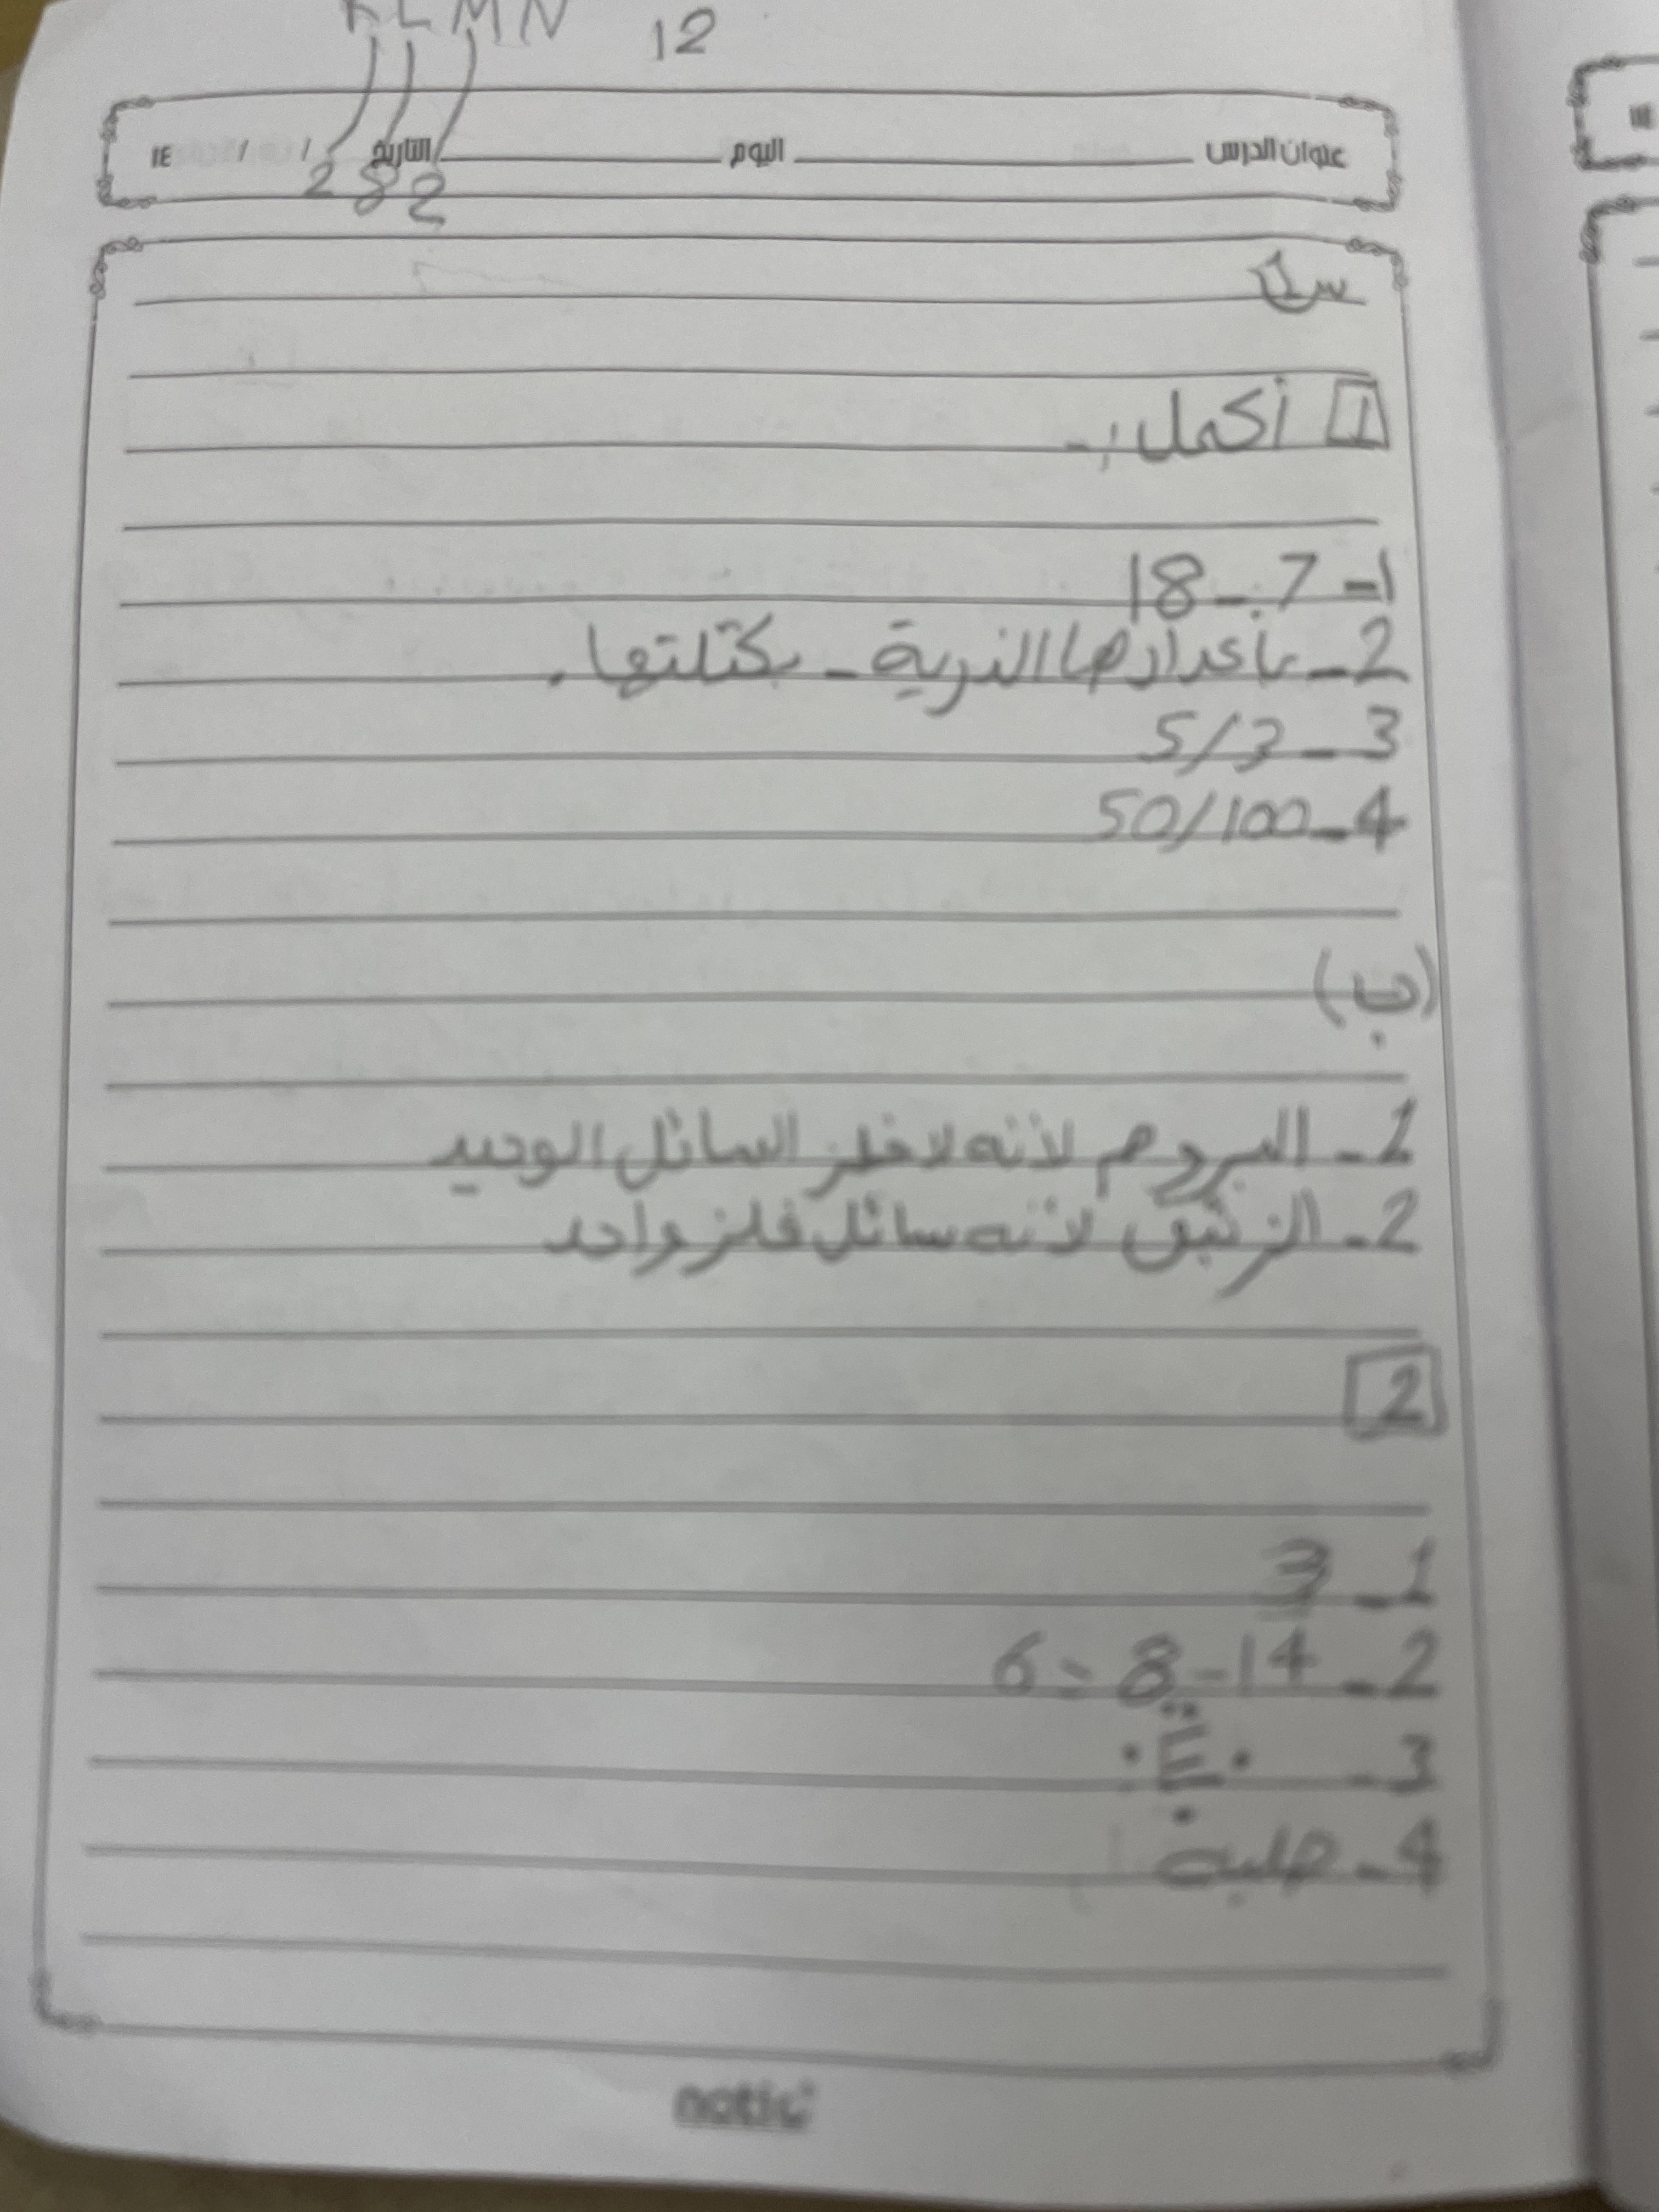 K L M N 12
عنوان الدرس اليوم التاريخ / / ١٤
2 8 2
س1
1 أكمل :-
1- 7 - 18
2- بأعدادها الذرية - بكتلتها .
3- 5/3
4- 50/100
(ب)
1- البروم لأنه لافلز السائل الوحيد
2- الزئبق لأنه سائل فلز واحد
2
1- 3
2- 14 - 8 = 6
3- E
4- صلبة